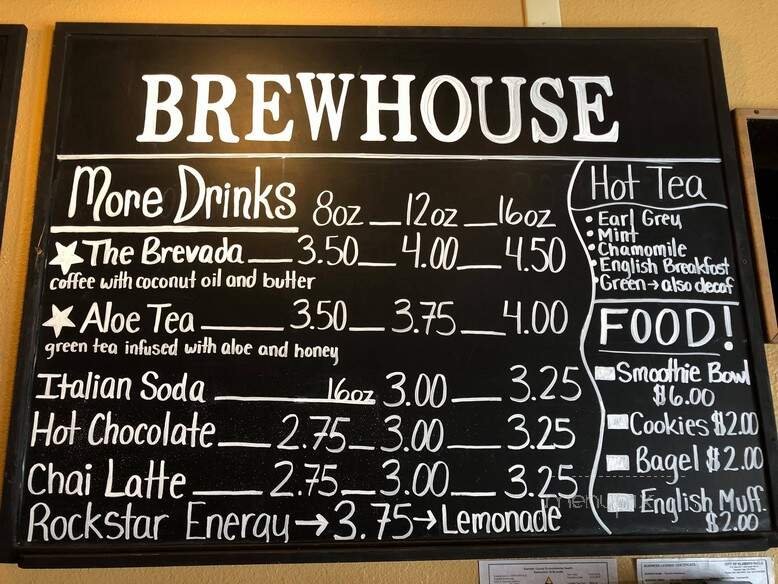 BREWHOUSE
More Drinks 8oz 12oz 16oz
The Brevada 3.50 4.00 4.50
coffee with coconut oil and butter
Aloe Tea 3.50 3.75 4.00
green tea infused with aloe and honey
Italian Soda 16oz 3.00 3.25
Hot Chocolate 2.75 3.00 3.25
Chai Latte 2.75 3.00 3.25
Rockstar Energy → 3.75 → Lemonade
Hot Tea
• Earl Grey
• Mint
• Chamomile
• English Breakfast
• Green → also decaf
FOOD!
Smoothie Bowl
$6.00
Cookies $2.00
Bagel $2.00
English Muff.
$2.00